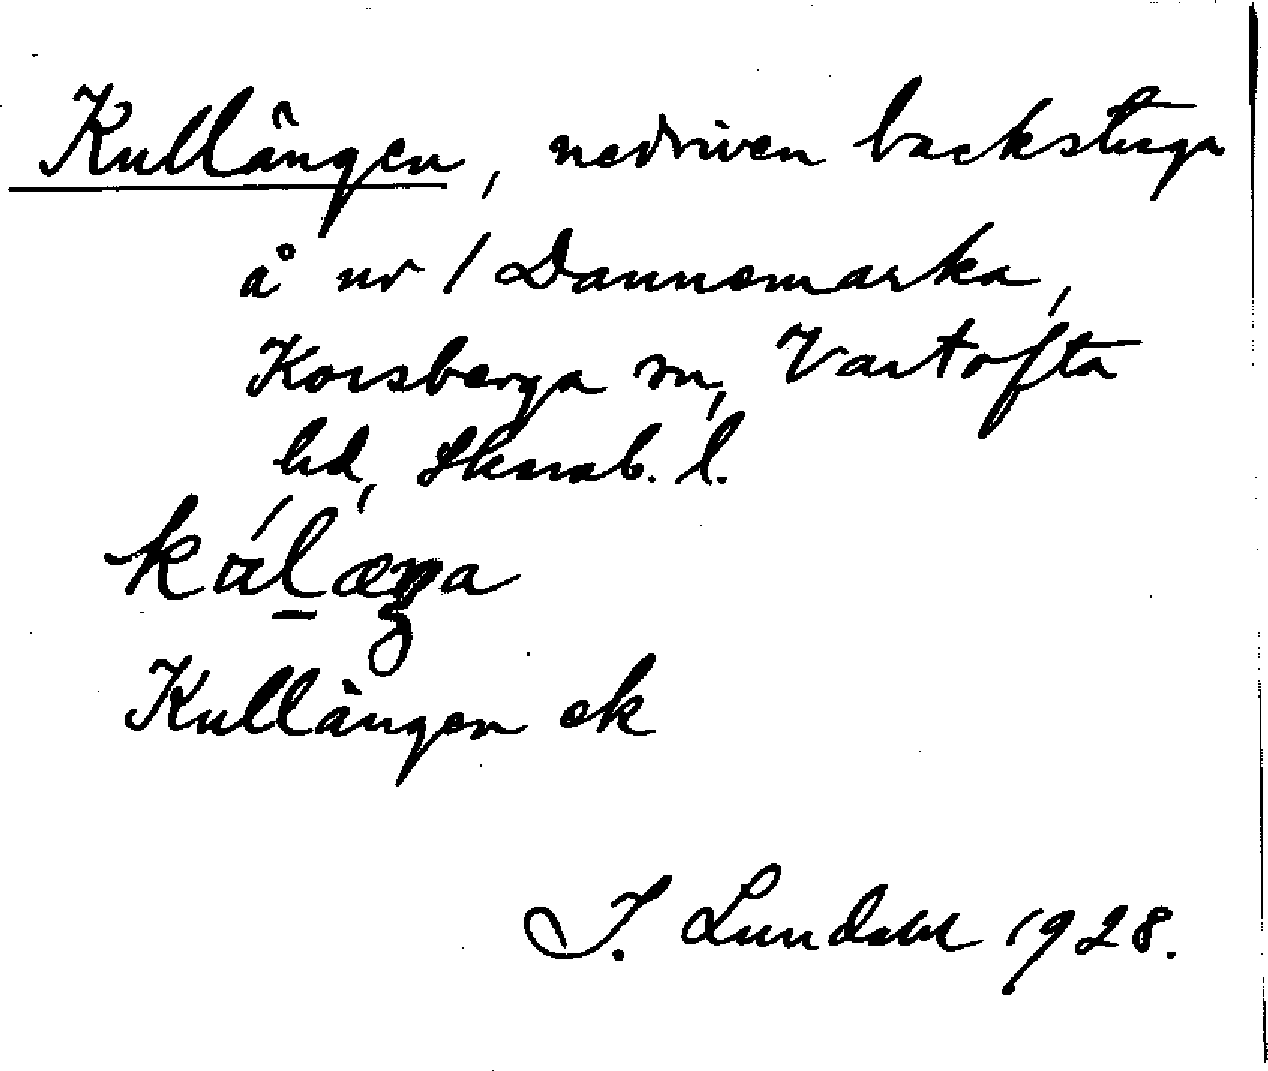 Kullängen, nedriven backstuga
å nr 1 Dannemarka,
Korsberga sn, Vartofta
hd, Skarab. l.
Kullängen ek
J. Lundahl 1928.